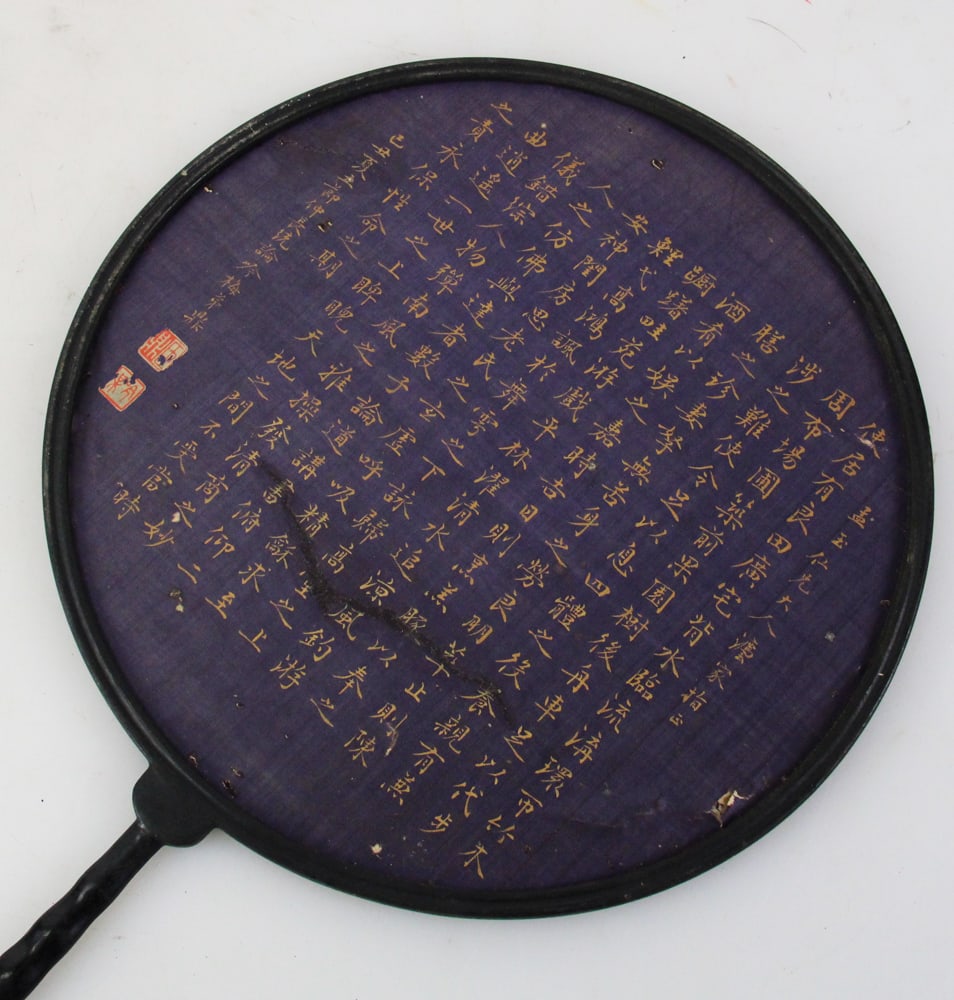 孟玉仁兄大人法家指正
使居有良田廣宅背水臨流溝環帀竹木
周布場圃築前果園樹後舟車足以代步
涉之難使令足以息四體之役養親有兼
膳之珍妻孥無苦身之勞良朋萃止則陳
酒肴以娛之嘉時吉日則烹羔豚以奉之
躕躇畦苑游戲平林濯清水追涼風釣游
鯉弋高鴻諷於舞雩之下詠歸高堂之上
安神閨房思老氏之玄虛呼吸精龢求至
人之仿佛與達者數子論道講書俯仰二
儀錯綜人物彈南風之雅操發清商之妙
曲逍遙一世之上睥睨天地之間不受當時
之責永保性命之期
己丑夏五節仲長統論 梅弟鼎